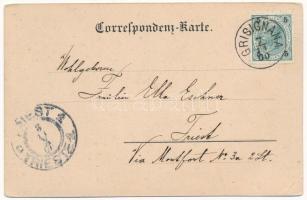 Correspondenz-Karte.
GRISIGNANA
5
5
Wohlgeboren
Fräulein Ella Eschner
Triest
Via Montfort No 3a 2 St.
TRIEST 4
TRIESTE 4